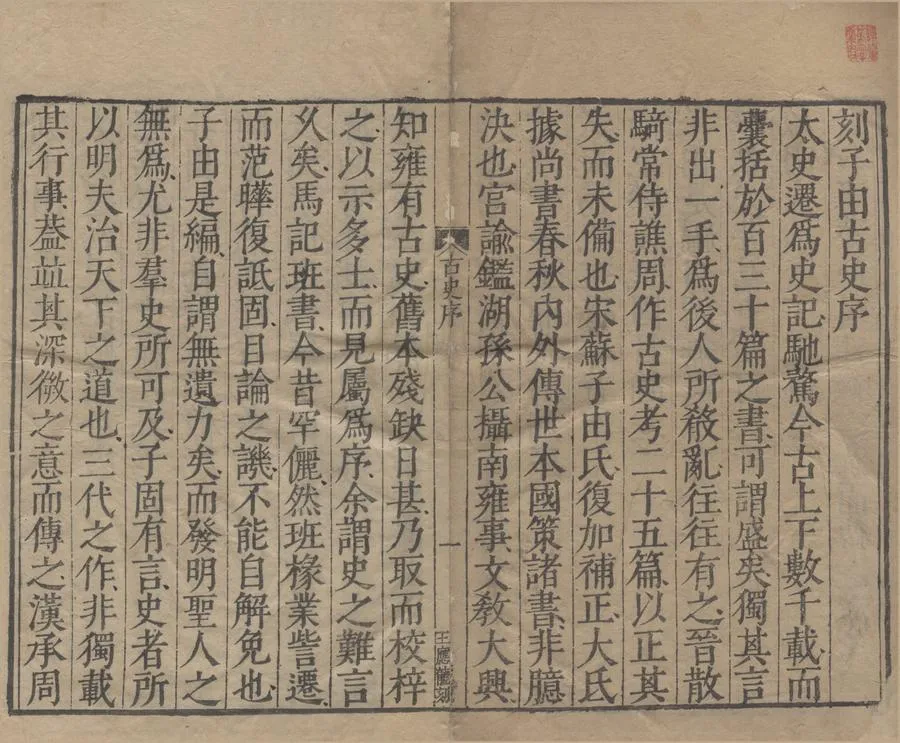 刻子由古史序
太史遷爲史記馳騖今古上下數千載而
囊括於百三十篇之書可謂盛矣獨其言
非出一手爲後人所殽亂往往有之晉散
騎常侍譙周作古史考二十五篇以正其
失而未備也宋蘇子由氏復加補正大氐
據尚書春秋內外傳世本國策諸書非臆
決也宫諭鑑湖孫公攝南雍事文敎大興
古史序
一
王應
刻
知雍有古史舊本殘缺日甚乃取而校梓
之以示多士而見屬爲序余謂史之難言
乆矣馬記班書今昔罕儷然班椽業訾遷
而范曄復詆固目論之譏不能自解免也
子由是編自謂無遺力矣而發明聖人之
無爲尤非羣史所可及子固有言史者所
以明夫治天下之道也三代之作非獨載
其行事葢竝其深微之意而傳之漢承周